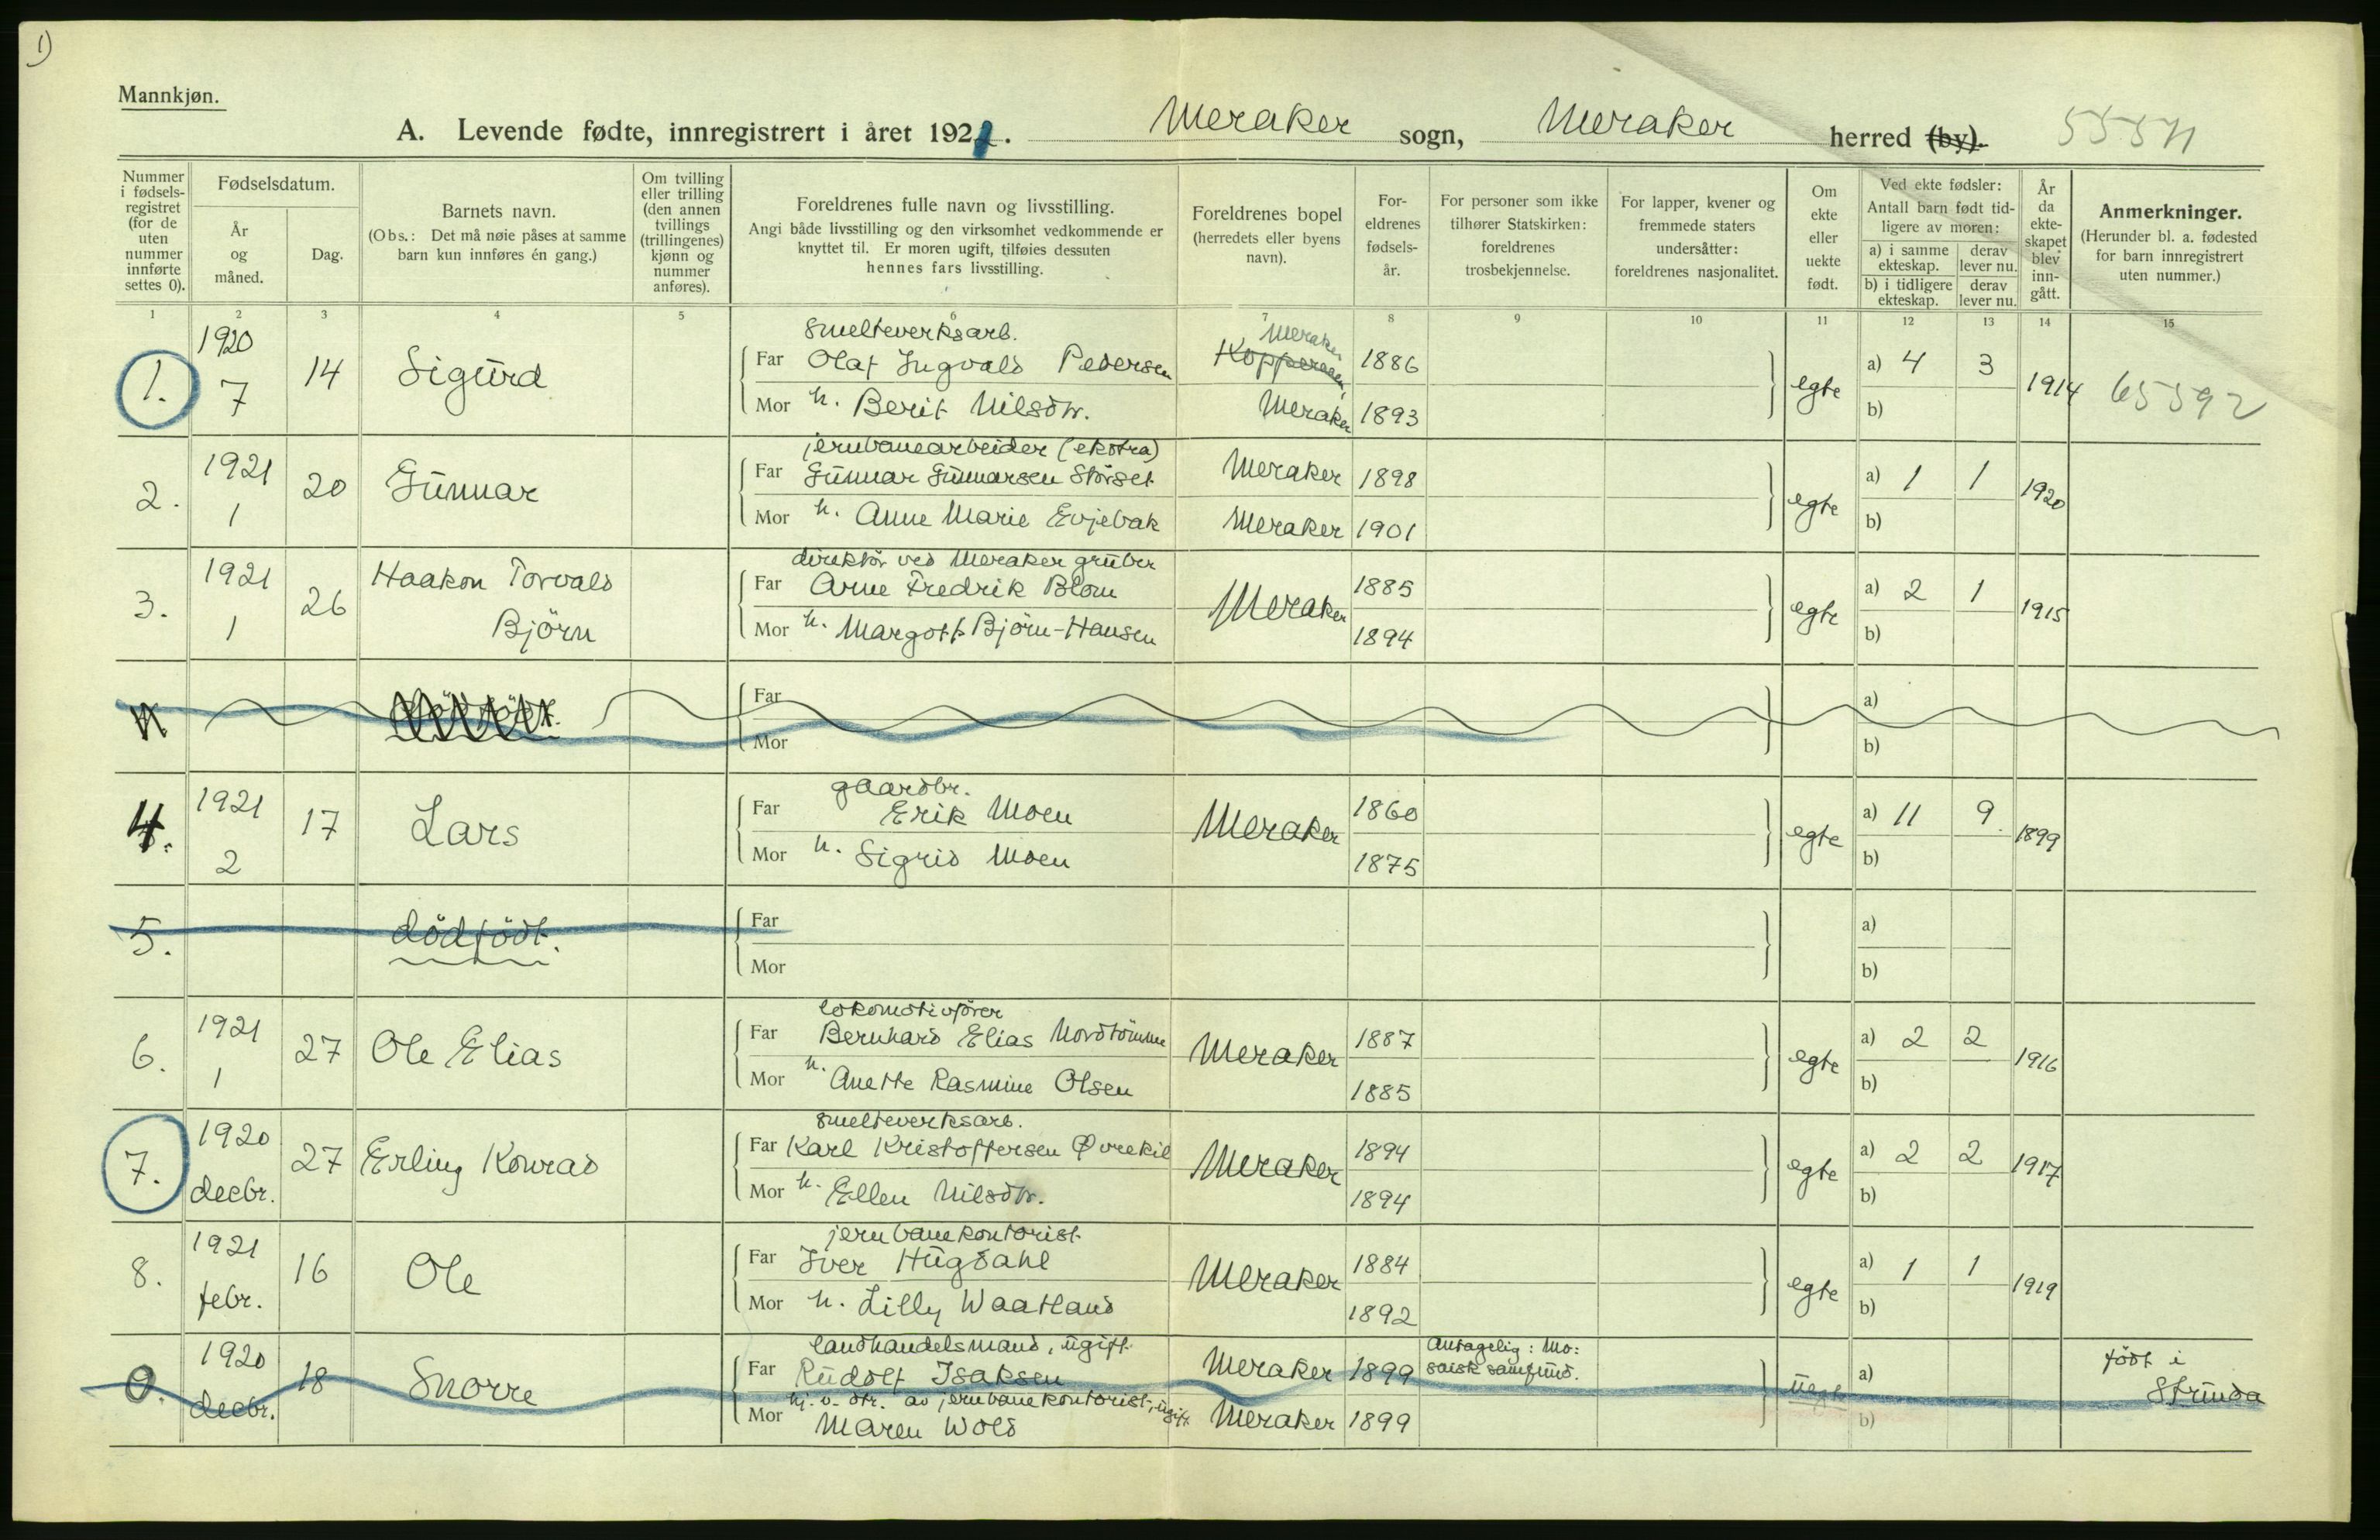 1)
Mannkjøn.
A. Levende fødte, innregistrert i året 1921. Meraker sogn, Meraker herred (by). 55571
Nummer i fødsels-registret (for de uten nummer innførte settes 0).
Fødselsdatum.
År og måned.
Dag.
Barnets navn.
(Obs.: Det må nøie påses at samme barn kun innføres én gang.)
Om tvilling eller trilling (den annen tvillings (trillingenes) kjønn og nummer anføres).
Foreldrenes fulle navn og livsstilling.
Angi både livsstilling og den virksomhet vedkommende er knyttet til. Er moren ugift, tilføies dessuten hennes fars livsstilling.
Foreldrenes bopel (herredets eller byens navn).
For-eldrenes fødsels-år.
For personer som ikke tilhører Statskirken: foreldrenes trosbekjennelse.
For lapper, kvener og fremmede staters undersåtter: foreldrenes nasjonalitet.
Om ekte eller uekte født.
Ved ekte fødsler: Antall barn født tid-ligere av moren:
a) i samme ekteskap. derav lever nu.
b) i tidligere ekteskap. derav lever nu.
År da ekte-skapet blev inn-gått.
Anmerkninger.
(Herunder bl. a. fødested for barn innregistrert uten nummer.)
1 2 3 4 5 6 7 8 9 10 11 12 13 14 15
1. 1920 7 14 Sigurd
smelteverksarb.
Far Olaf Ingvald Pedersen Meraker Kopperaaen, 1886
Mor h. Berit Nilsdtr. Meraker 1893
egte a) 4 3 b) 1914 65592
2. 1921 1 20 Gunnar
jernbanearbeider (ekstra)
Far Gunnar Gunnarsen Störset Meraker 1898
Mor h. Anne Marie Evjebak Meraker 1901
egte a) 1 1 b) 1920
3. 1921 1 26 Haakon Torvald Björn
direktör ved Meraker gruber
Far Arne Fredrik Blom Meraker 1885
Mor h. Margott Björn-Hansen 1894
egte a) 2 1 b) 1915
Far a)
Mor b)
4. 1921 2 17 Lars
gaardbr.
Far Erik Moen Meraker 1860
Mor h. Sigrid Moen 1875
egte a) 11 9. b) 1899
5. dödfödt.
Far a)
Mor b)
6. 1921 1 27 Ole Elias
lokomotivförer
Far Bernhard Elias Nordtömme Meraker 1887
Mor h. Anette Rasmine Olsen 1885
egte a) 2 2 b) 1916
7. 1920 decbr. 27 Erling Konrad
smelteverksarb.
Far Karl Kristoffersen Øvrekil Meraker 1894
Mor h. Ellen Nilsdtr. 1894
egte a) 2 2 b) 1917
8. 1921 febr. 16 Ole
jernbanekontorist
Far Iver Hugdahl Meraker 1884
Mor h. Lilly Waatland 1892
egte a) 1 1 b) 1919
0. 1920 decbr. 18 Snorre
landhandelsmand, ugift
Far Rudolf Isaksen Meraker 1899 Antagelig: Mo: saisk samfund.
hj. v. dtr. av jernbanekontorist, ugift
Mor Maren Wold Meraker 1899
uegte a) b) födt i Strinda